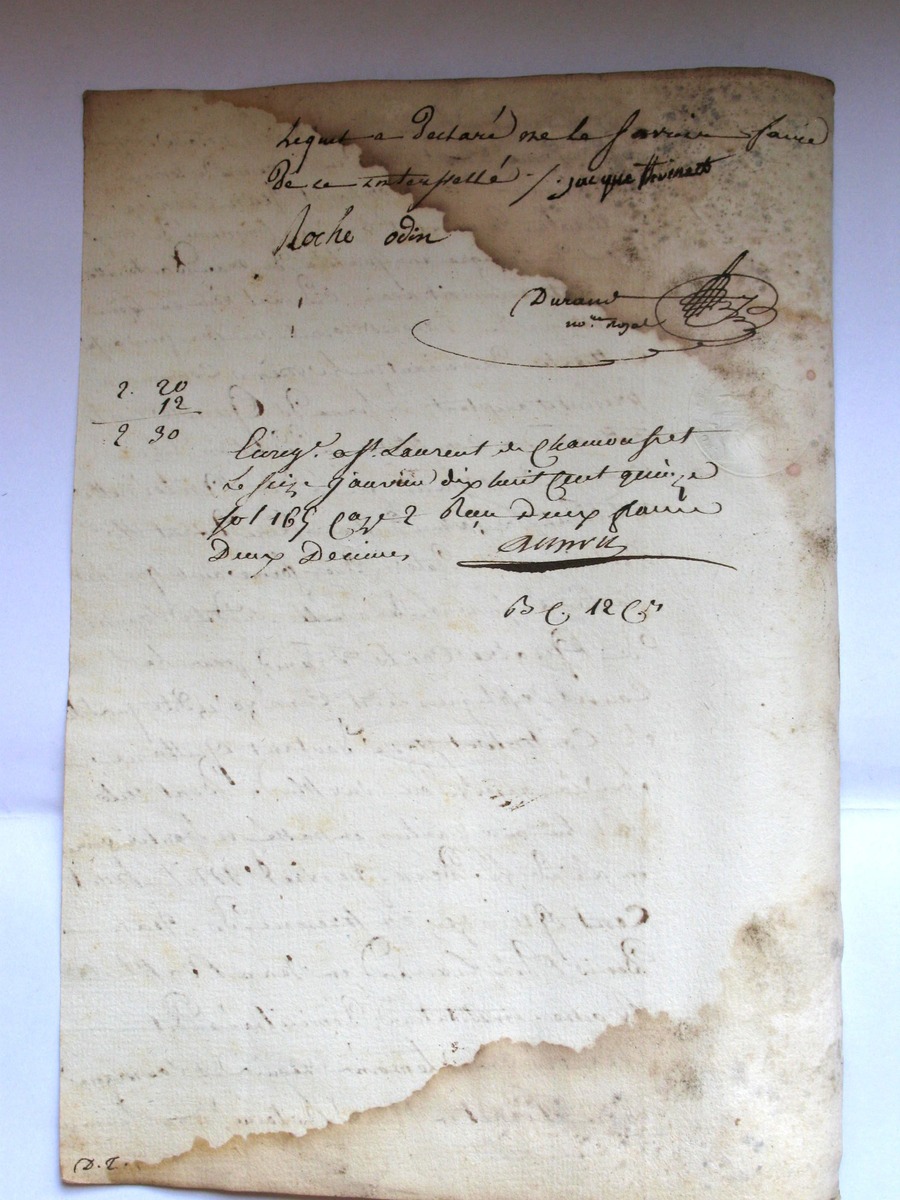 lequel a declaré ne le savoir faire
De ce interpellé ./. jacque thivenet
Roche odin
Durand
no.re royal
2. 20
12
2 30
Enreg.é a St. Laurent de Chamousset
Le seize janvier dix huit cent quinze
fol 165 case 2 Reçu Deux francs
Deux Decimes
12 Cs
D. T.